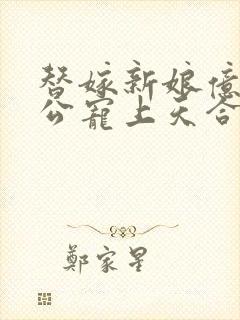 替嫁新娘億
公寵上天合
鄭家星